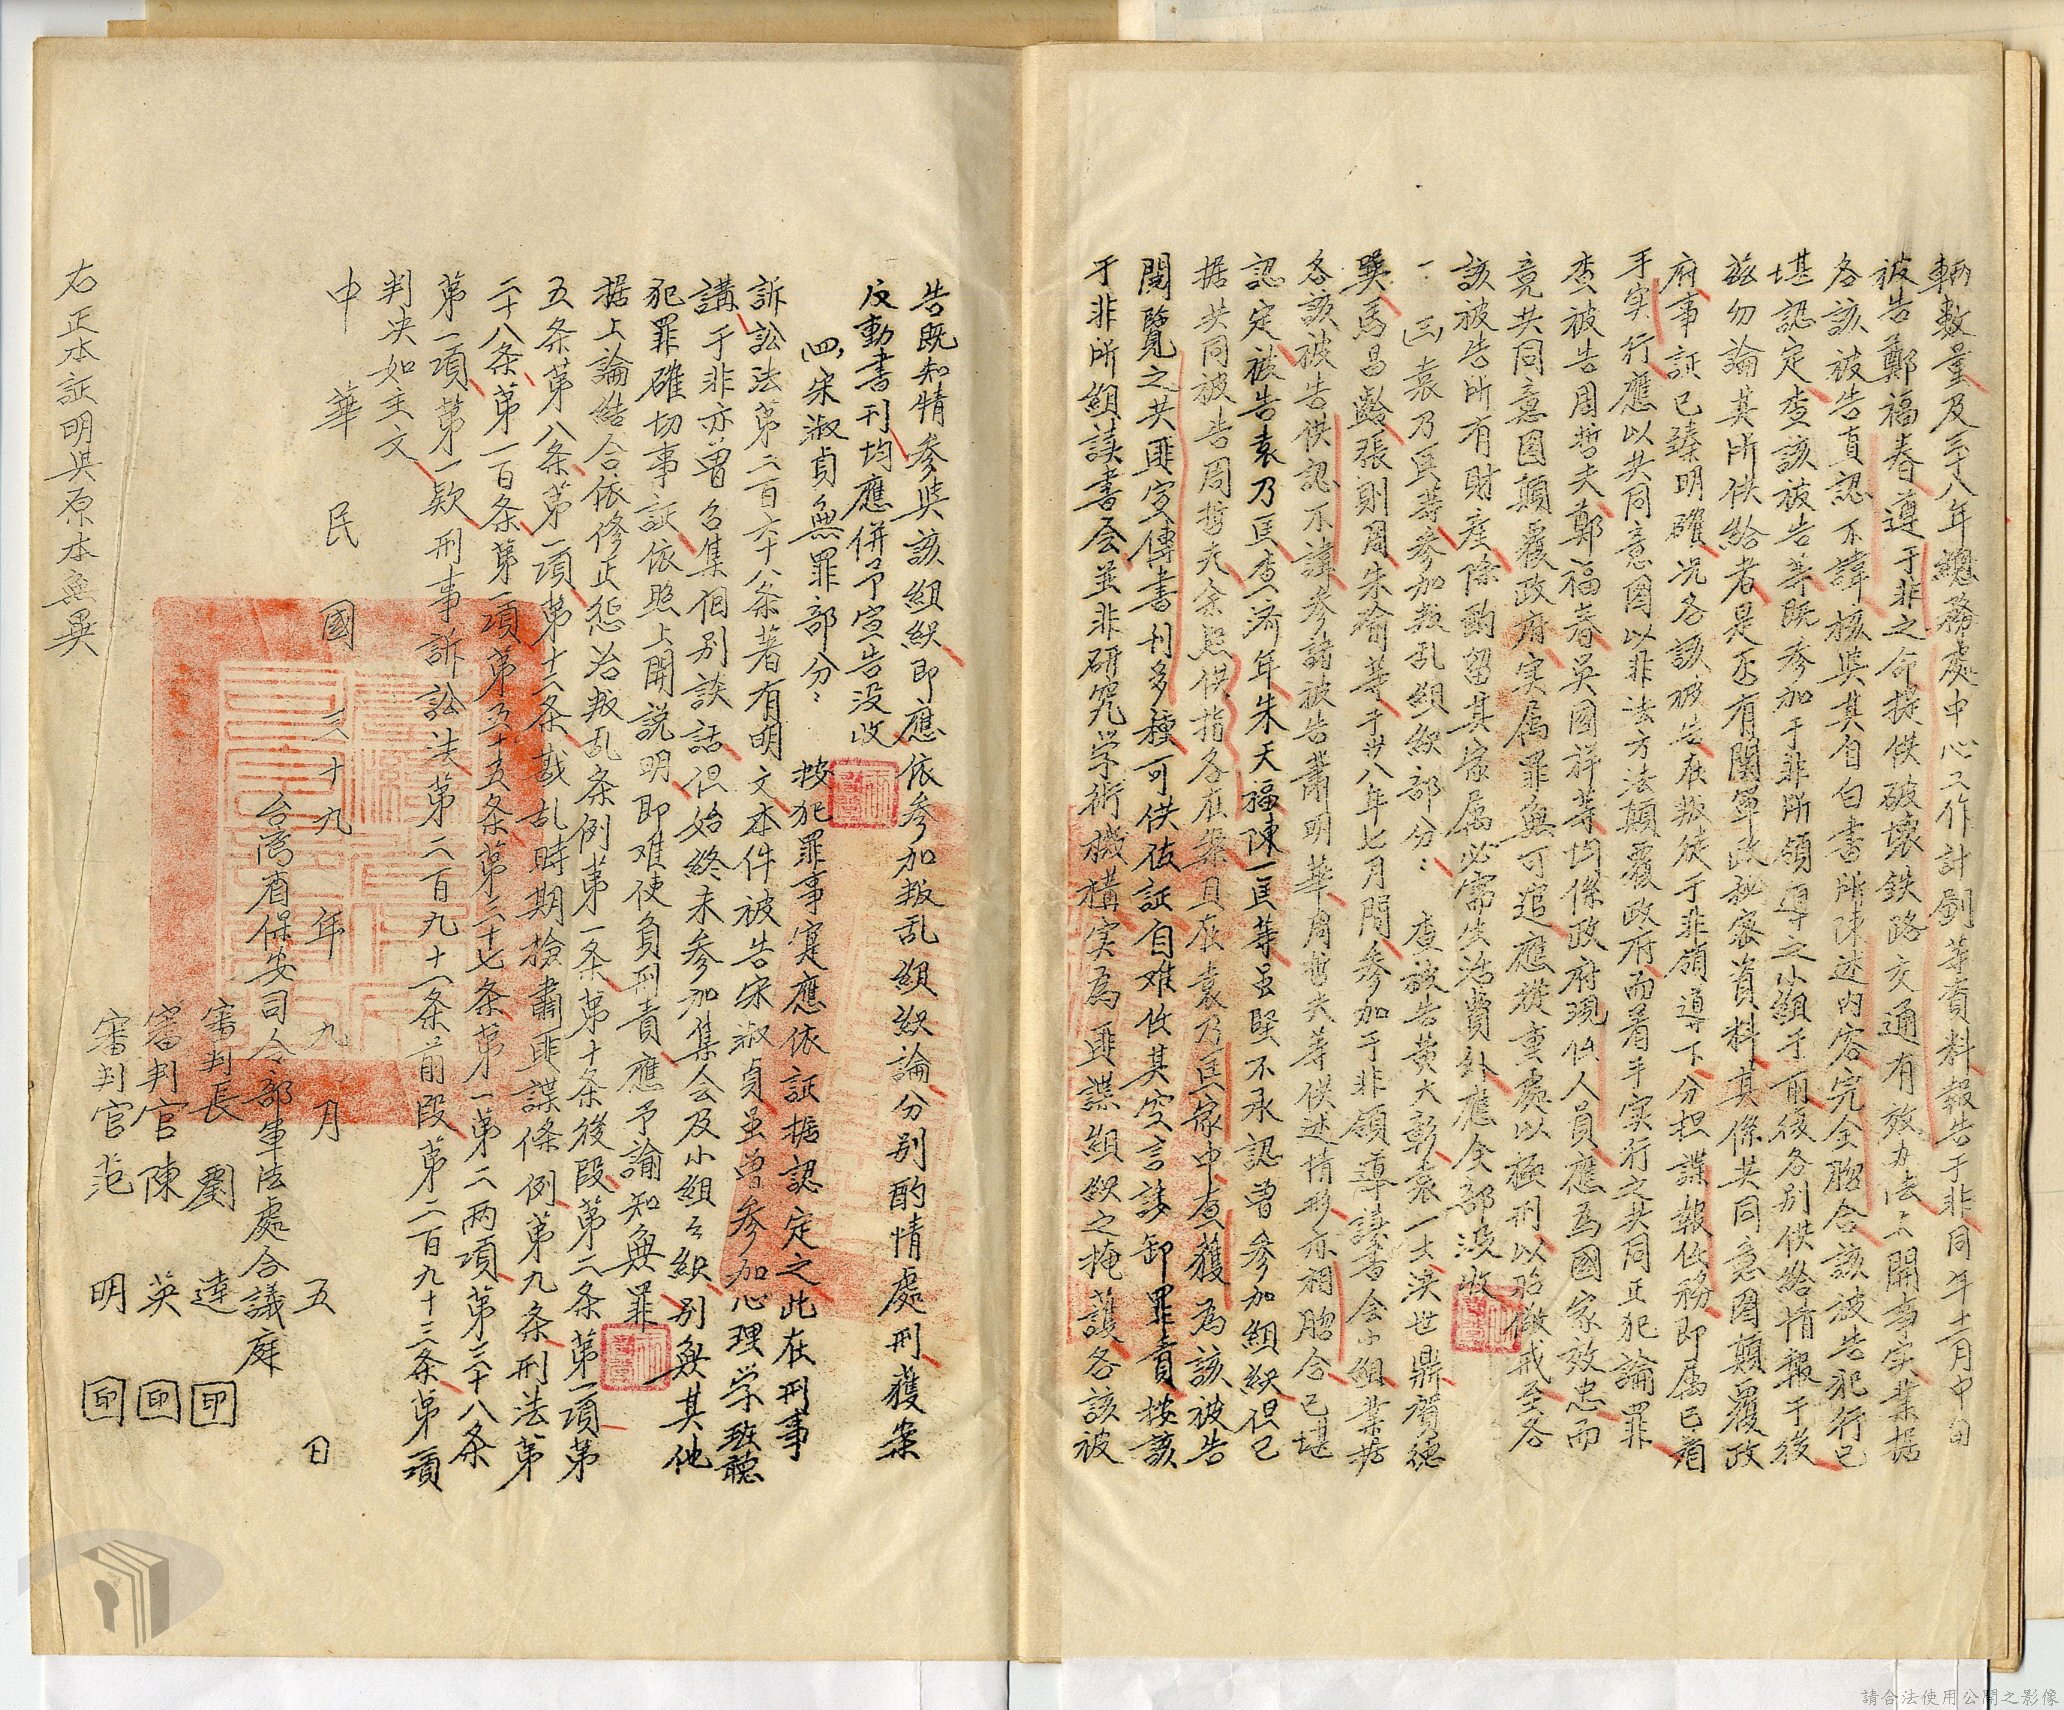 輛數量及三十八年總務處中心工作計劃等資料報告于非同年十二月中旬
被告鄭福春遵于非之命提供破壞鉄路交通有效办法上開事实業据
各該被告直認不諱核與其自白書所陳述內容完全脗合該被告犯行已
堪認定查該被告等既參加于非所領導之小組于前後各別供給情報于後
茲勿論其所供給者是否有關軍政秘密資料其係共同意圖顛覆政
府事証已臻明確况各該被告在叛徒于非領導下分担諜報任務即屬已着
手实行應以共同意圖以非法方法顛覆政府而着手实行之共同正犯論罪
查被告周哲夫鄭福春吳國祥等均係政府現任人員應為國家效忠而
竟共同意圖顛覆政府实屬罪無可逭應從重處以極刑以昭儆戒至各
該被告所有財產除酌留其家屬必需生活費外應全部沒收
㈢袁乃匡等參加叛乱組織部分： 查被告黃大彰袁一士洪世鼎賀德
巽馬昌齡張則周朱瑜等于卅八年七月間參加于非領導讀書会小組業据
各該被告供認不諱參諸被告蕭明華周哲夫等供述情形亦相脗合已堪
認定被告袁乃匡查濟年朱天福陳一匡等虽堅不承認曾參加組織但已
据共同被告周哲夫余烈供指各在案且在袁乃匡家中查獲為該被告
閱覽之共匪宣傳書刊多種可供佐証自难任其空言諉卸罪責按該
于非所組讀書会並非研究学術機構实為匪諜組織之掩護各該被
告既知情參與該組織即應依參加叛乱組織論分别酌情處刑獲案
反動書刊均應併予宣告没收
四、宋淑貞無罪部分： 按犯罪事寔應依証据認定之此在刑事
訴訟法第二百六十八条著有明文本件被告宋淑貞虽曾參加心理学班聽
講于非亦曾召集個别談話但始終未參加集会及小組組織别無其他
犯罪確切事証依照上開說明即难使負刑責應予諭知無罪
据上論結合依修正惩治叛乱条例第一条第十条後段第二条第一項第
五条第八条第一項第十二条戡乱時期檢肅匪諜條例第九条刑法第
二十八条第一百条第一項第五十五条第三十七条第一第二两項第三十八条
第一項第一款刑事訴訟法第二百九十一条前段第二百九十三条第一項
判决如主文
中華民國三十九年九月五日
台湾省保安司令部軍法處合議庭
審判長 劉達 印
審判官 陳英 印
審判官 范明 印
右正本証明與原本無異
請合法使用公開之影像